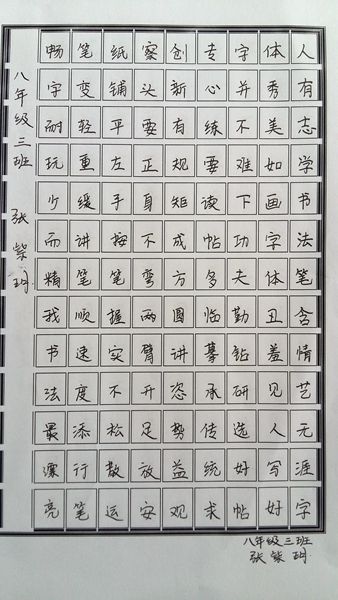 人有志学书法笔含情艺无涯字
体秀美如画字体丑羞见人写好
字并不难下功夫勤钻研选好帖
专心练要读帖多临摹承传统求
创新有规矩成方圆讲恣势益观
察头要正身不弯两臂开足放安
纸铺平左手按笔握实不松散运
笔变轻重缓讲笔顺速度添行笔
畅字耐玩少而精我书法最漂亮
八年级三班 张紫玥
八年级三班
张紫玥